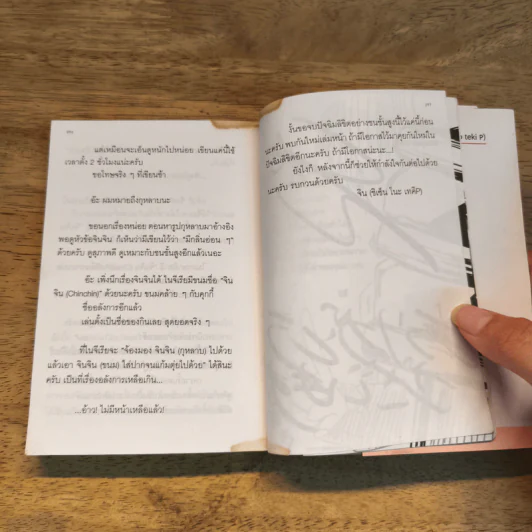 แต่เหมือนจะเอ็นดูหนักไปหน่อย เขียนแค่นี้ใช้
เวลาตั้ง 2 ชั่วโมงแน่ะครับ
ขอโทษจริง ๆ ที่เขียนช้า
อ๊ะ ผมหมายถึงกุหลาบนะ
ขอนอกเรื่องหน่อย ตอนหารูปกุหลาบมาอ้างอิง
พอดูหัวข้อจินจิน ก็เห็นว่ามีเขียนไว้ว่า "มีกลิ่นอ่อน ๆ"
ด้วยครับ ดูสุภาพดี ดูเหมาะกับชนชั้นสูงอีกแล้วเนอะ
อ๊ะ เพิ่งนึกเรื่องจินจินได้ ในจีเรียมีขนมชื่อ "จิน
จิน (Chinchin)" ด้วยนะครับ ขนมคล้าย ๆ กับคุกกี้
ชื่ออลังการอีกแล้ว
เล่นตั้งเป็นชื่อของกินเลย สุดยอดจริง ๆ
ที่ไนจีเรียจะ "จ้องมอง จินจิน (กุหลาบ) ไปด้วย
แล้วเอา จินจิน (ขนม) ใส่ปากจนแก้มตุ่ยไปด้วย" ได้สินะ
ครับ เป็นที่เรื่องอลังการเหลือเกิน...
...อ้าว! ไม่มีหน้าเหลือแล้ว!
งั้นขอจบปัจฉิมลิขิตอย่างชนชั้นสูงนี้ไว้แค่นี้ก่อน
นะครับ พบกันใหม่เล่มหน้า ถ้ามีโอกาสไว้มาคุยกันใหม่ใน
ปัจฉิมลิขิตอีกนะครับ ถ้ามีโอกาสน่ะนะ...!
ยังไงก็ หลังจากนี้ก็ช่วยให้กำลังใจกันต่อไปด้วย
นะครับ รบกวนด้วยครับ
จิน (ชิเซ็น โนะ เทคิP)
teki P)